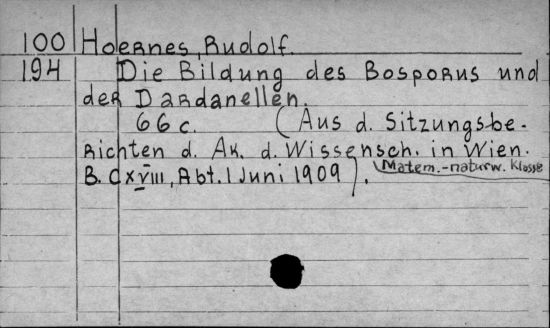 100 Hoernes, Rudolf.
194 Die Bildung des Bosporus und
der Dardanellen.
66 c. (Aus d. Sitzungsbe-
richten d. Ak. d. Wissensch. in Wien.
Matem.-naturw. Klasse
B. CXVIII, Abt. I Juni 1909).